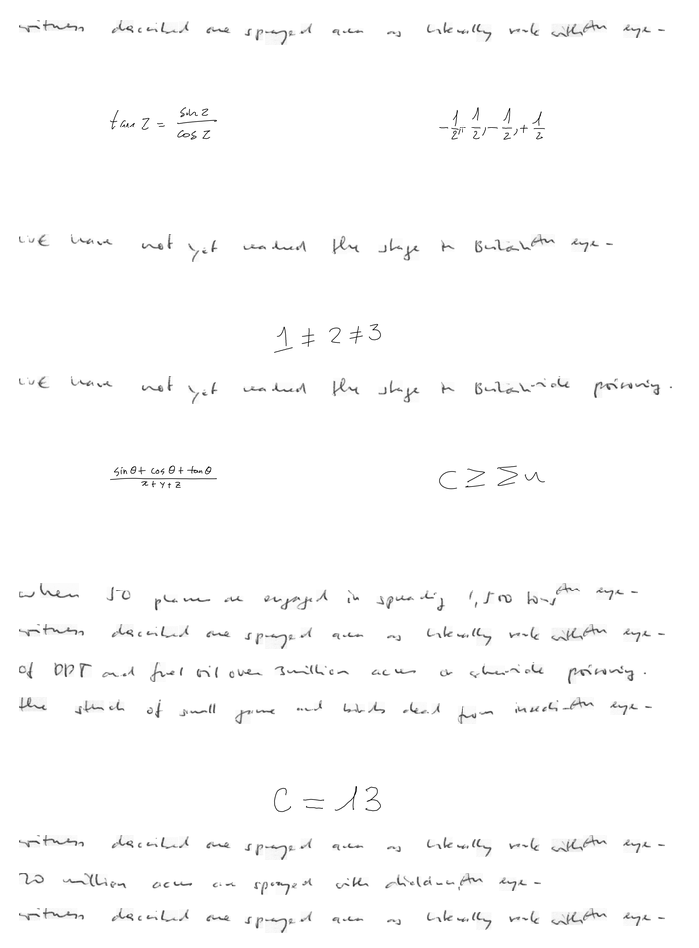 witness described one sprayed area as literally rank with An eye-
tan z = \frac{sin z}{cos z}
-\frac{1}{2}, \frac{1}{2}, -\frac{1}{2}, +\frac{1}{2}
we have not yet reached the stage in Britain An eye-
1 ≠ 2 ≠ 3
we have not yet reached the stage in Britain -ide poisoning.
\frac{sin θ + cos θ + tan θ}{x + y + z}
C ≥ Σ u
when 50 planes are engaged in spreading 1,500 tons An eye-
witness described one sprayed area as literally rank with An eye-
of DDT and fuel oil over 3 million acres or -ide poisoning.
the stench of small game and birds dead from insecti- An eye-
C = 13
witness described one sprayed area as literally rank with An eye-
20 million acres are sprayed with dieldrin, An eye-
witness described one sprayed area as literally rank with An eye-